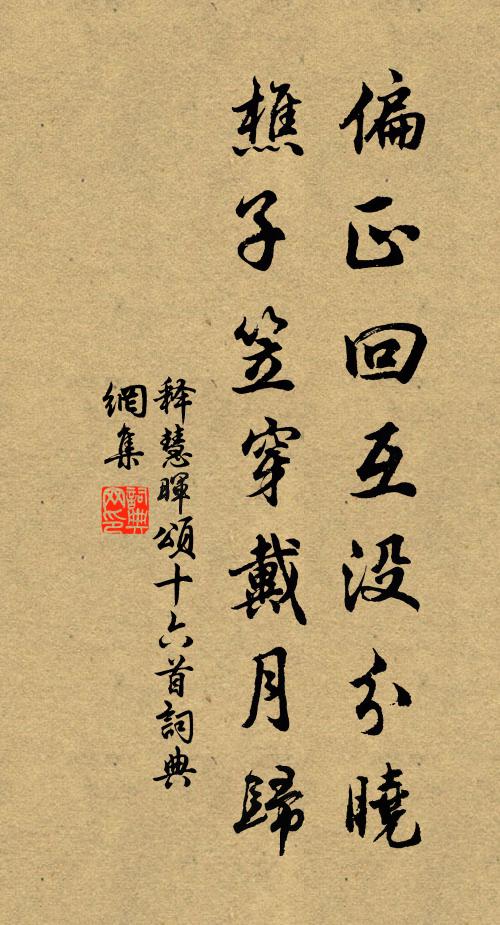 偏正回互没分曉
樵子笠穿戴月歸
释慧暉頌十六首詞典
網集
詞典
网印